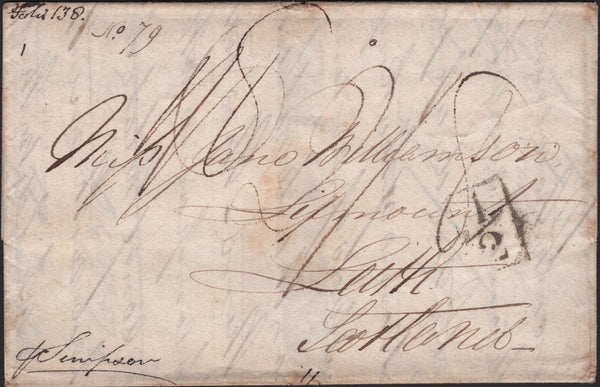 Folio 138.
No 79
1
Miss Jane Williamson
Leith
Scotland
p Simpson